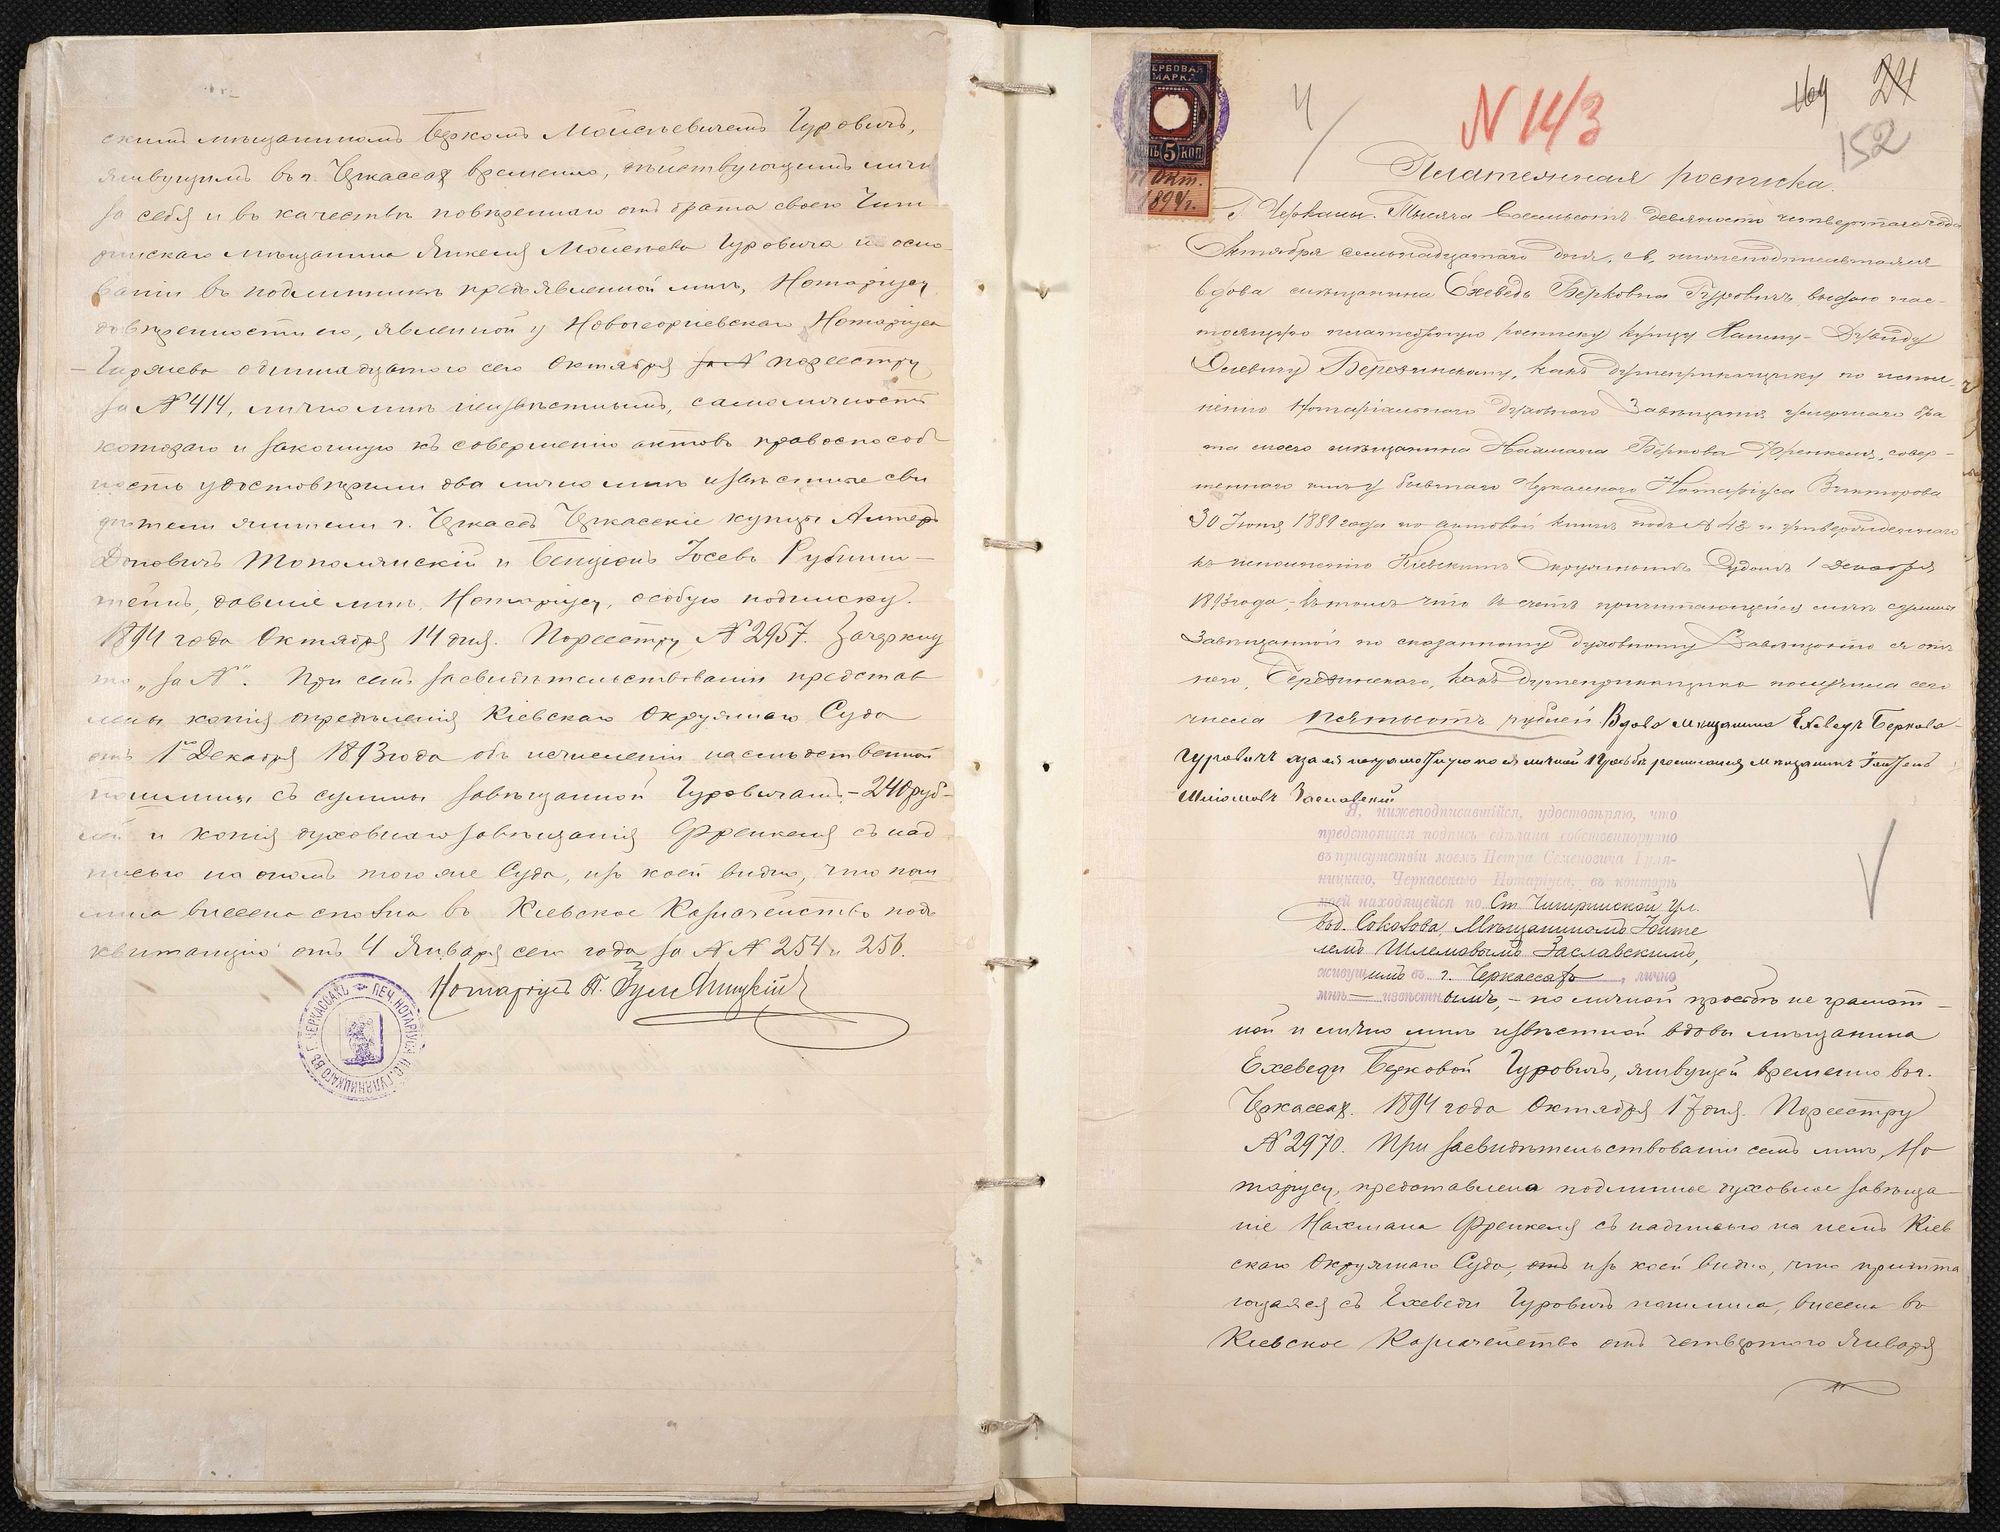 скимъ мѣщаниномъ Беркомъ Мойсеевичемъ Гуровичъ,
живущимъ въ г. Черкассахъ временно, дѣйствующимъ лично
за себя и въ качествѣ повѣреннаго отъ брата своего Чиги-
ринскаго мѣщанина Янкеля Мойсеева Гуровича на осно-
ваніи въ подлинникѣ предъявленной мнѣ, Нотаріусу
довѣренности его, явленной у Новогеоргіевскаго Нотаріуса
одиннадцатого сего Октября за № по реестру
за № 414, лично мнѣ неизвѣстнымъ, самоличность
котораго и законную къ совершенію актовъ правоспособ-
ность удостовѣрили два лично мнѣ извѣстные сви-
дѣтели жители г. Черкассъ Черкасскіе купцы
Тополянскій и Бенціонъ Іосевъ Рубин-
штейнъ, давшіе мнѣ, Нотаріусу, особую подписку.
1894 года Октября 14 дня. По реестру № 2957. Зачеркну-
то „за №". При семъ засвидѣтельствованіи представ-
лены копія опредѣленія Кіевскаго Окружнаго Суда
отъ 1го Декабря 1893 года объ исчисленіи наслѣдственной
пошлины съ суммы завѣщанной Гуровичамъ – 240 руб-
лей и копія духовнаго завѣщанія Френкеля съ над-
писью на ономъ того же Суда, изъ коей видно, что пош-
лина внесена сполна въ Кіевское Казначейство подъ
квитанцію отъ 4 Января сего года за №№ 254 и 256.
Нотаріусъ П. Гуляницкій
ПЕЧ. НОТАРІУСА П.С. ГУЛЯНИЦКАГО ВЪ Г. ЧЕРКАССАХЪ
ГЕРБОВАЯ
МАРКА
5 КОП
17 Окт.
1894 г.
4
N 143
169 24
152
Платежная росписка.
Г. Черкасы. Тысяча восемьсотъ девяносто четвертаго года
Октября семьнадцатаго дня, я, нижеподписавшаяся
вдова мѣщанина Ехеведъ Берковна Гуровичъ, выдаю нас-
тоящую платежную росписку купцу Дувиду
Березинскому, какъ душеприкащику по испол-
ненію нотаріальнаго духовнаго завѣщанія умершаго бра-
та моего мѣщанина Нахмана Беркова Френкеля, совер-
шеннаго у бывшаго Черкасскаго Нотаріуса Викторова
30 Іюня 1889 года по актовой книгѣ подъ № 43 и утвержденнаго
къ исполненію Кіевскимъ Окружнымъ Судомъ 1 Декабря
1893 года, въ томъ что въ счетъ причитающейся мнѣ суммы
завѣщанной по сказанному духовному завѣщанію я отъ
него, Березинскаго, какъ душеприкащика получила сего
числа пятьсотъ рублей. Вдова мѣщанина Ехеведъ Беркова
Гуровичъ а за ея неграмотную по ея личной просьбѣ росписался мѣщанинъ
Шліомовъ Заславскій
Я, нижеподписавшійся, удостовѣряю, что
предстоящая подпись сдѣлана собственноручно
въ присутствіи моемъ Петра Семеновича Гуля-
ницкаго, Черкасскаго Нотаріуса, въ конторѣ
моей находящейся по Ст. Чигиринской ул.
въ д. Соколова, Мѣщаниномъ
Шлемовымъ Заславскимъ,
живущимъ въ г. Черкассахъ, лично
мнѣ – извѣстнымъ, – по личной просьбѣ неграмот-
ной и лично мнѣ извѣстной вдовы мѣщанина
Ехеведи Берковой Гуровичъ, живущей временно въ г.
Черкассахъ. 1894 года Октября 17 дня. По реестру
№ 2970. При засвидѣтельствованіи семъ мнѣ, Но-
таріусу, представлено подлинное духовное завѣща-
ніе Нахмана Френкеля съ надписью на немъ Кіев-
скаго Окружнаго Суда, отъ изъ коей видно, что причита-
ющаяся съ Ехеведи Гуровичъ пошлина, внесена въ
Кіевское Казначейство отъ четвертаго Января